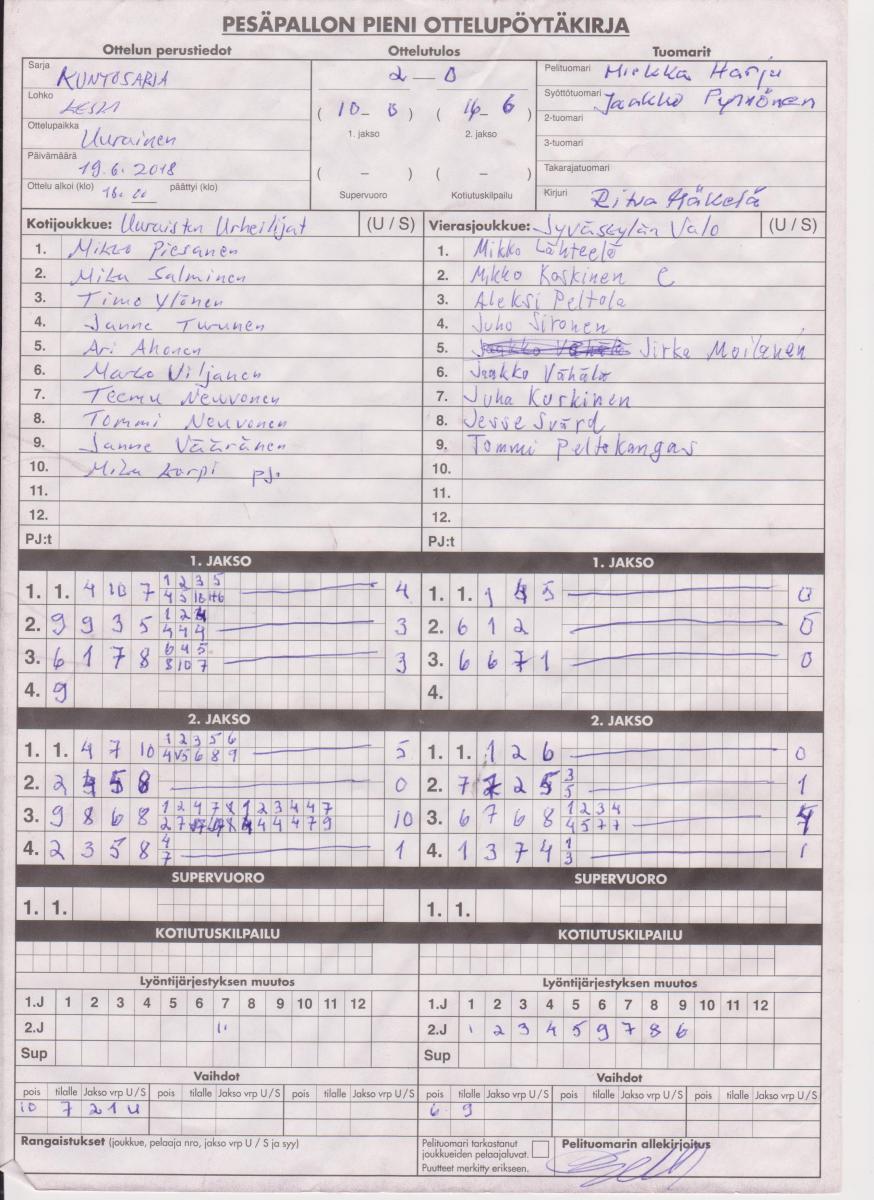 PESÄPALLON PIENI OTTELUPÖYTÄKIRJA
Ottelun perustiedot Ottelutulos Tuomarit
Sarja KUNTOSARJA
Lohko
Ottelupaikka Uurainen
Päivämäärä 19.6.2018
Ottelu alkoi (klo) 18.00 päättyi (klo)
2 – 0
( 10 – 0 ) ( 16 – 6 )
1. jakso 2. jakso
( – ) ( – )
Supervuoro Kotiutuskilpailu
Pelituomari Miekka Harju
Syöttötuomari Jaakko Pynnönen
2-tuomari
3-tuomari
Takarajatuomari
Kirjuri Ritva Mäkelä
Kotijoukkue: Uuraisten Urheilijat (U / S) Vierasjoukkue: Jyväskylän Valo (U / S)
1. Mikko Piesanen 1. Mikko Lähteelä
2. Mika Salminen 2. Mikko Koskinen C
3. Timo Ylönen 3. Aleksi Peltola
4. Janne Turunen 4. Juho Sironen
5. Ari Ahonen 5. Jirka Moilanen
6. Marko Viljanen 6. Jaakko Vähälä
7. Teemu Neuvonen 7. Juha Korkinen
8. Tommi Neuvonen 8. Jesse Svärd
9. Janne Vääränen 9. Tommi Peltokangas
10. Mika Korpi pj. 10.
11. 11.
12. 12.
PJ:t PJ:t
1. JAKSO 1. JAKSO
1. 1. 4 10 7 1 2 3 5 4 1. 1. 1 5 0
2. 9 9 3 5 3 2. 6 1 2 0
4 4 4
3. 6 1 7 8 6 4 5 3 3. 6 6 7 1 0
8 10 7
4. 9 4.
2. JAKSO 2. JAKSO
1. 1. 4 7 10 1 2 3 5 6 5 1. 1. 1 2 6 0
6 8 9
2. 2 5 8 0 2. 7 2 5 3 1
5
3. 9 8 6 8 1 2 4 7 8 1 2 3 4 4 7 10 3. 6 7 6 8 1 2 3 4 4
4 4 4 7 9 4 5 7 7
4. 2 3 5 8 4 1 4. 1 3 7 4 1 1
7 3
SUPERVUORO SUPERVUORO
1. 1. 1. 1.
KOTIUTUSKILPAILU KOTIUTUSKILPAILU
Lyöntijärjestyksen muutos Lyöntijärjestyksen muutos
1.J 1 2 3 4 5 6 7 8 9 10 11 12 1.J 1 2 3 4 5 6 7 8 9 10 11 12
2.J 2.J 1 2 3 4 5 9 7 8 6
Sup Sup
Vaihdot Vaihdot
pois tilalle Jakso vrp U / S pois tilalle Jakso vrp U / S pois tilalle Jakso vrp U / S pois tilalle Jakso vrp U / S pois tilalle Jakso vrp U / S pois tilalle Jakso vrp U / S
10 7 2 1 U 6 9
Rangaistukset (joukkue, pelaaja nro, jakso vrp U / S ja syy)
Pelituomari tarkastanut joukkueiden pelaajaluvat.
Puutteet merkitty erikseen.
Pelituomarin allekirjoitus